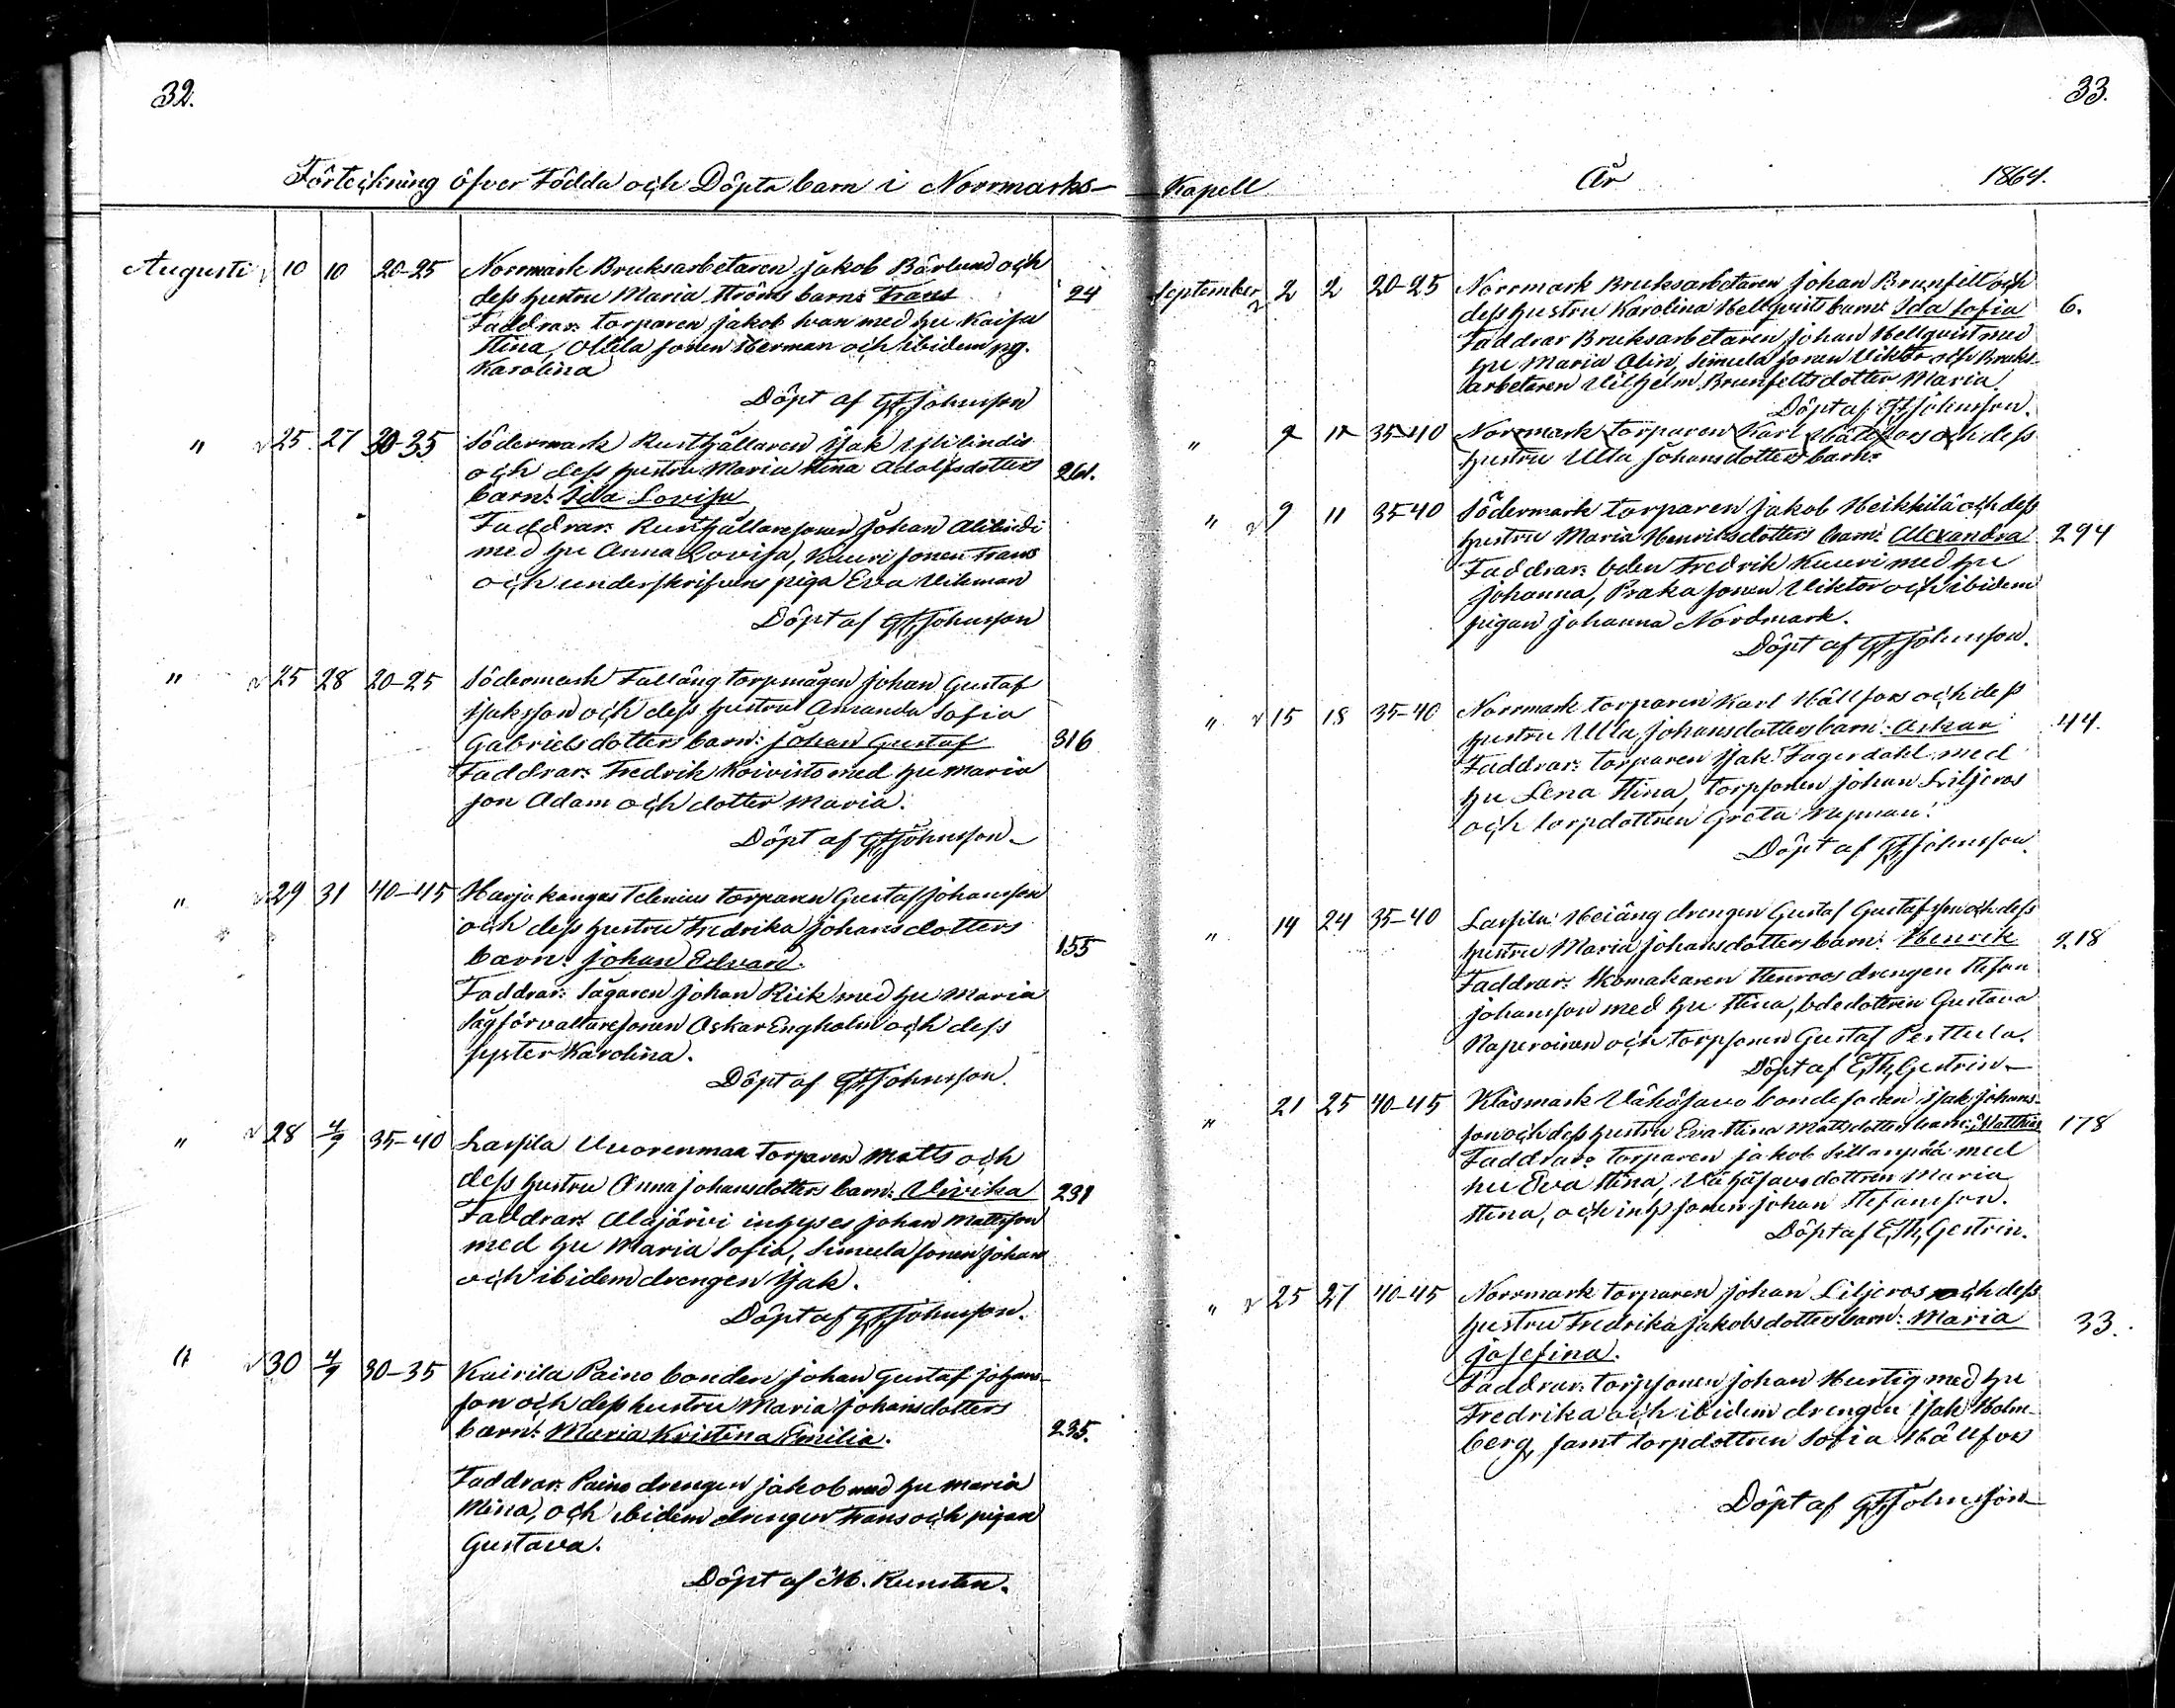 32.
Förteckning öfver Födda och Döpta barn i Norrmarks-
Augusti 10 10 20-25 Norrmark Bruksarbetaren Jakob Bärlund och
dess hustru Maria Ströms barn: Frans 24
Faddrar: torparen Jakob Ivan med hu Kaisa
Stina, Ollila sonen Herman och ibidem pg.
Karolina
Döpt af GFJohnsson
" 25 27 30-35 Södermark Rusthållaren Isak Ylilindis
och dess hustru Maria Stina Adolfsdotters
barn: Ida Lovisa 261.
Faddrar: Rusthållaresonen Johan Alilindi
med hu Anna Lovisa, Kuuri sonen Frans
och underskrifvens piga Eva Wikman
Döpt af GFJohnsson
" 25 28 20-25 Södermark Fallång torpmågen Johan Gustaf
Isaksson och dess hustru Amanda Sofia
Gabrielsdotters barn: Johan Gustaf 316
Faddrar: Fredrik Koivisto med hu Maria
son Adam och dotter Maria.
Döpt af GFJohnsson
" 29 31 40-45 Harjakangas Telenius torparen Gustaf Johansson
och dess hustru Fredrika Johansdotters
barn: Johan Edvard. 155
Faddrar: Sågaren Johan Riik med hu Maria
Sågförvaltaresonen Oskar Engholm och dess
syster Karolina.
Döpt af GFJohnsson.
" 28 4/9 35-40 Lassila Vuorenmaa torparen Matts och
dess hustru Anna Johansdotters barn: Vivika 231
Faddrar: Alajärvi inhyses Johan Mattsson
med hu Maria Sofia, Simula sonen Johan
och ibidem drengen Isak.
Döpt af GFJohnsson.
" 30 4/9 30-35 Kairila Paino bonden Johan Gustaf Johans-
son och dess hustru Maria Johansdotters
barn: Maria Kristina Emilia. 235.
Faddrar: Paino drengen Jakob med hu Maria
Mina, och ibidem drengen Frans och pigan
Gustava.
Döpt af M. Runsten.
33.
Kapell År 1864.
September 2 2 20-25 Norrmark Bruksarbetaren Johan Brunfelt och
dess hustru Karolina Hellqvists barn: Ida Sofia 6.
Faddrar Bruksarbetaren Johan Hellqvist med
hu Maria Olin, Simula sonen Viktor och Bruks-
arbetaren Vilhelm Brunfelts dotter Maria.
Döpt af GFJohnsson.
" 9 11 35-40 Norrmark torparen Karl Hällfors och dess
hustru Ulla Johansdotters barn:
" 9 11 35-40 Södermark torparen Jakob Heikkilä och dess
hustru Maria Henriksdotters barn: Alexandra 294
Faddrar: bden Fredrik Kuuri med hu
Johanna, Praka sonen Viktor och ibidem
pigan Johanna Nordmark.
Döpt af GFJohnsson.
" 15 18 35-40 Norrmark torparen Karl Hällfors och dess
hustru Ulla Johansdotters barn: Oskar 44.
Faddrar: torparen Isak Fagerdahl med
hu Lena Stina, torpsonen Johan Liljeros
och torpdottren Greta Wapman.
Döpt af GFJohnsson.
" 14 24 35-40 Lassila Heiäng drengen Gustaf Gustafsson och dess
hustru Maria Johansdotters barn: Henrik 218
Faddrar: Skomakaren Stenroos drengen Stefan
Johansson med hu Stina, bdedottren Gustava
Naperoinen och torpsonen Gustaf Perttula.
Döpt af E,Th,Gestrin.
" 21 25 40-45 Kläsmark Vähäsavo bondesonen Isak Johans-
son och dess hustru Eva Stina Mattsdotters barn: Matthias 178
Faddrar: torparen Jakob Sillanpää med
hu Eva Stina, Vähäsavo dottren Maria
Stina, och inhs sonen Johan Stefansson.
Döpt af E,Th,Gestrin.
" 25 27 40-45 Norrmark torparen Johan Liljeros och dess
hustru Fredrika Jakobsdotters barn: Maria 33.
Josefina.
Faddrar: torpsonen Johan Hurtig med hu
Fredrika och ibidem drengen Isak Holm-
berg, samt torpdottren Sofia Hällfors
Döpt af GFJohnsson